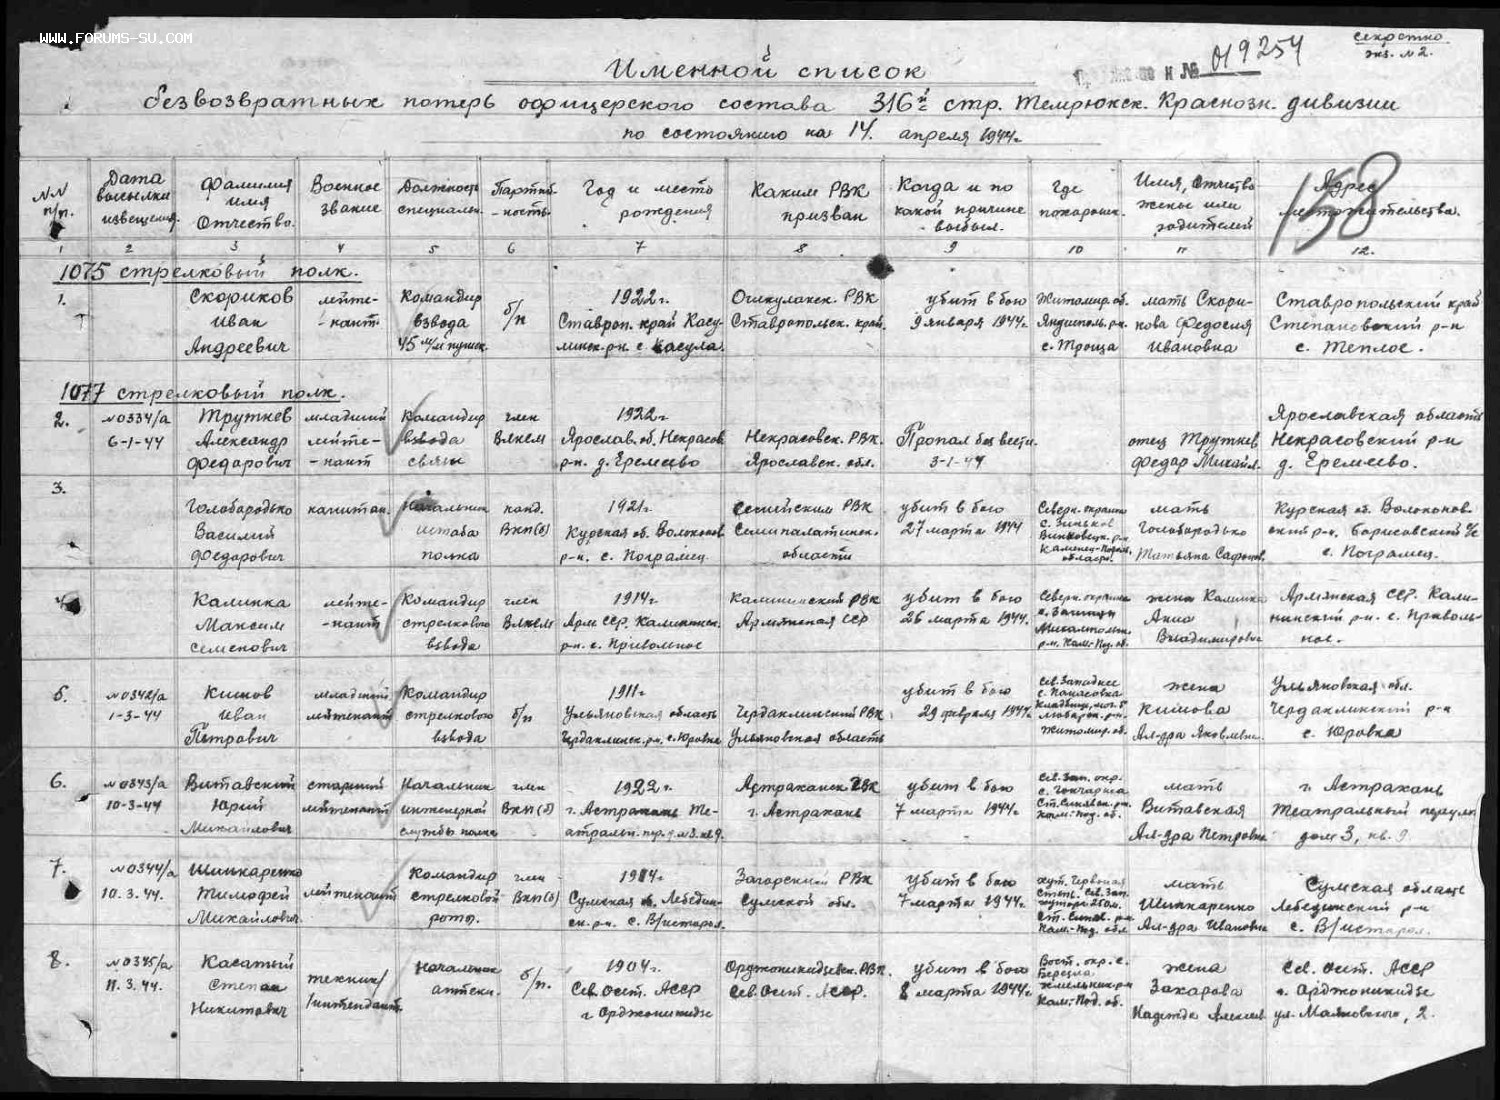 WWW.FORUMS-SU.COM
секретно
экз. № 2.
и № 019254
Именной список
безвозвратных потерь офицерского состава 316й стр. Темрюкск. Краснозн. дивизии
по состоянию на 14. апреля 1944г.
158
№№ п/п. Дата высылки извещения. Фамилия имя Отчество. Военное звание Должность специальн. Партий-ность Год и место рождения Каким РВК призван Когда и по какой причине выбыл. Где похоронен. Имя, Отчество жены или родителей Адрес местожительства.
1 2 3 4 5 6 7 8 9 10 11 12.
1075 стрелковый полк.
1. Скориков лейте- Командир б/п 1922г. РВК убит в бою Житомир. об. мать Скори- Ставропольский край
Иван -нант взвода Ставроп. край Касу- Ставропольск. край. 9 января 1944г. р-н кова Федосия Степановский р-н
Андреевич 45 м/м пушек линск. р-н. с. Касула. с. Троща Ивановна с. Теплое.
1077 стрелковый полк.
2. №0334/а Трутнев младший Командир член 1922г Ярославская область
6-1-44 Александр лейте- взвода ВЛКСМ Ярослав. об. Некрасов. Некрасовск. РВК. Пропал без вести. отец Трутнев Некрасовский р-н
Федорович -нант связи р-н. д. Еремеево Ярославск. обл. 3-1-44 Федор Михайл. д. Еремеево.
3.
Голобородько капитан. Начальник канд. 1921г. РВК убит в бою Северн. окраина мать Курская об. Волоконов.
Василий штаба ВКП(б) Курская об. Волоконов. Семипалатинск. 27 марта 1944 с. Зиньков Голобородько ский р-н. Борисовский с/с
Федорович полка р-н. с. Погромец. области Винковецк. р-н Татьяна с. Погромец.
Каменец-Подол. область.
4. Калинка лейте- Командир член 1914г. Калининский РВК убит в бою Северн. окраина жена Калинка Армянская ССР. Кали-
Максим -нант стрелкового ВЛКСМ Арм. ССР. Калининск. Армянская ССР 26 марта 1944г. Анна нинский р-н. с. Приволь-
Семенович взвода р-н. с. Привольное р-н. Кам.-Под. об. Владимировн ное.
5. №0342/а Кишов младший Командир б/п 1911г убит в бою Сев. Западнее жена Ульяновская обл.
1-3-44 Иван лейтенант стрелкового Ульяновская область Чердаклинский РВК 29 февраля 1944г. с. Панасовка Кишова Чердаклинский р-н
Петрович взвода Чердаклинск. р-н. с. Юровка Ульяновская область Любарск. р-н. Житомир. об. Ал-дра Яковлевн. с. Юровка
6. №0343/а Витавский старший Начальник член 1922г. Астраханск. ГВК убит в бою Сев. Зап. окр. мать г. Астрахань
10-3-44 Юрий лейтенант инженерной ВКП(б) г. Астрахань Те- г. Астрахань 7 марта 1944г. с. Гончариха Витавская Театральный переул.
Михайлович службы полка атральн. пер. д. №3. кв 9. Ст. Синявск. р-н. Кам.-Под. об. Ал-дра Петровна дом 3, кв. 9.
7. №0344/а Шинкаренко лейтенант Командир член 1914г Загорский РВК убит в бою хут. Червоная мать Сумская область
10.3.44. Тимофей стрелковой ВКП(б) Сумская об. Лебедин- Сумской обл. 7 марта 1944г. Сев. Зап. Шинкаренко Лебединский р-н
Михайлович роты. ск. р-н. с. В/исторол. Ст. Синяв. р-н Кам.-Под. обл. Ал-дра Ивановна с. В/исторол.
8. №0345/а Касатый техник/ Начальник б/п. 1904г. Орджоникидзевск. РВК. убит в бою Вост. окр. с. жена Сев. Осет. АССР
11.3.44. Степан /интендант. аптеки. Сев. Осет. АССР Сев. Осет. АССР. 8 марта 1944г. Березна Захарова г. Орджоникидзе
Никитович г Орджоникидзе Хмельник. р-н Кам.-Под. об. Надежда Алексеев. ул. Маяковского, 2.